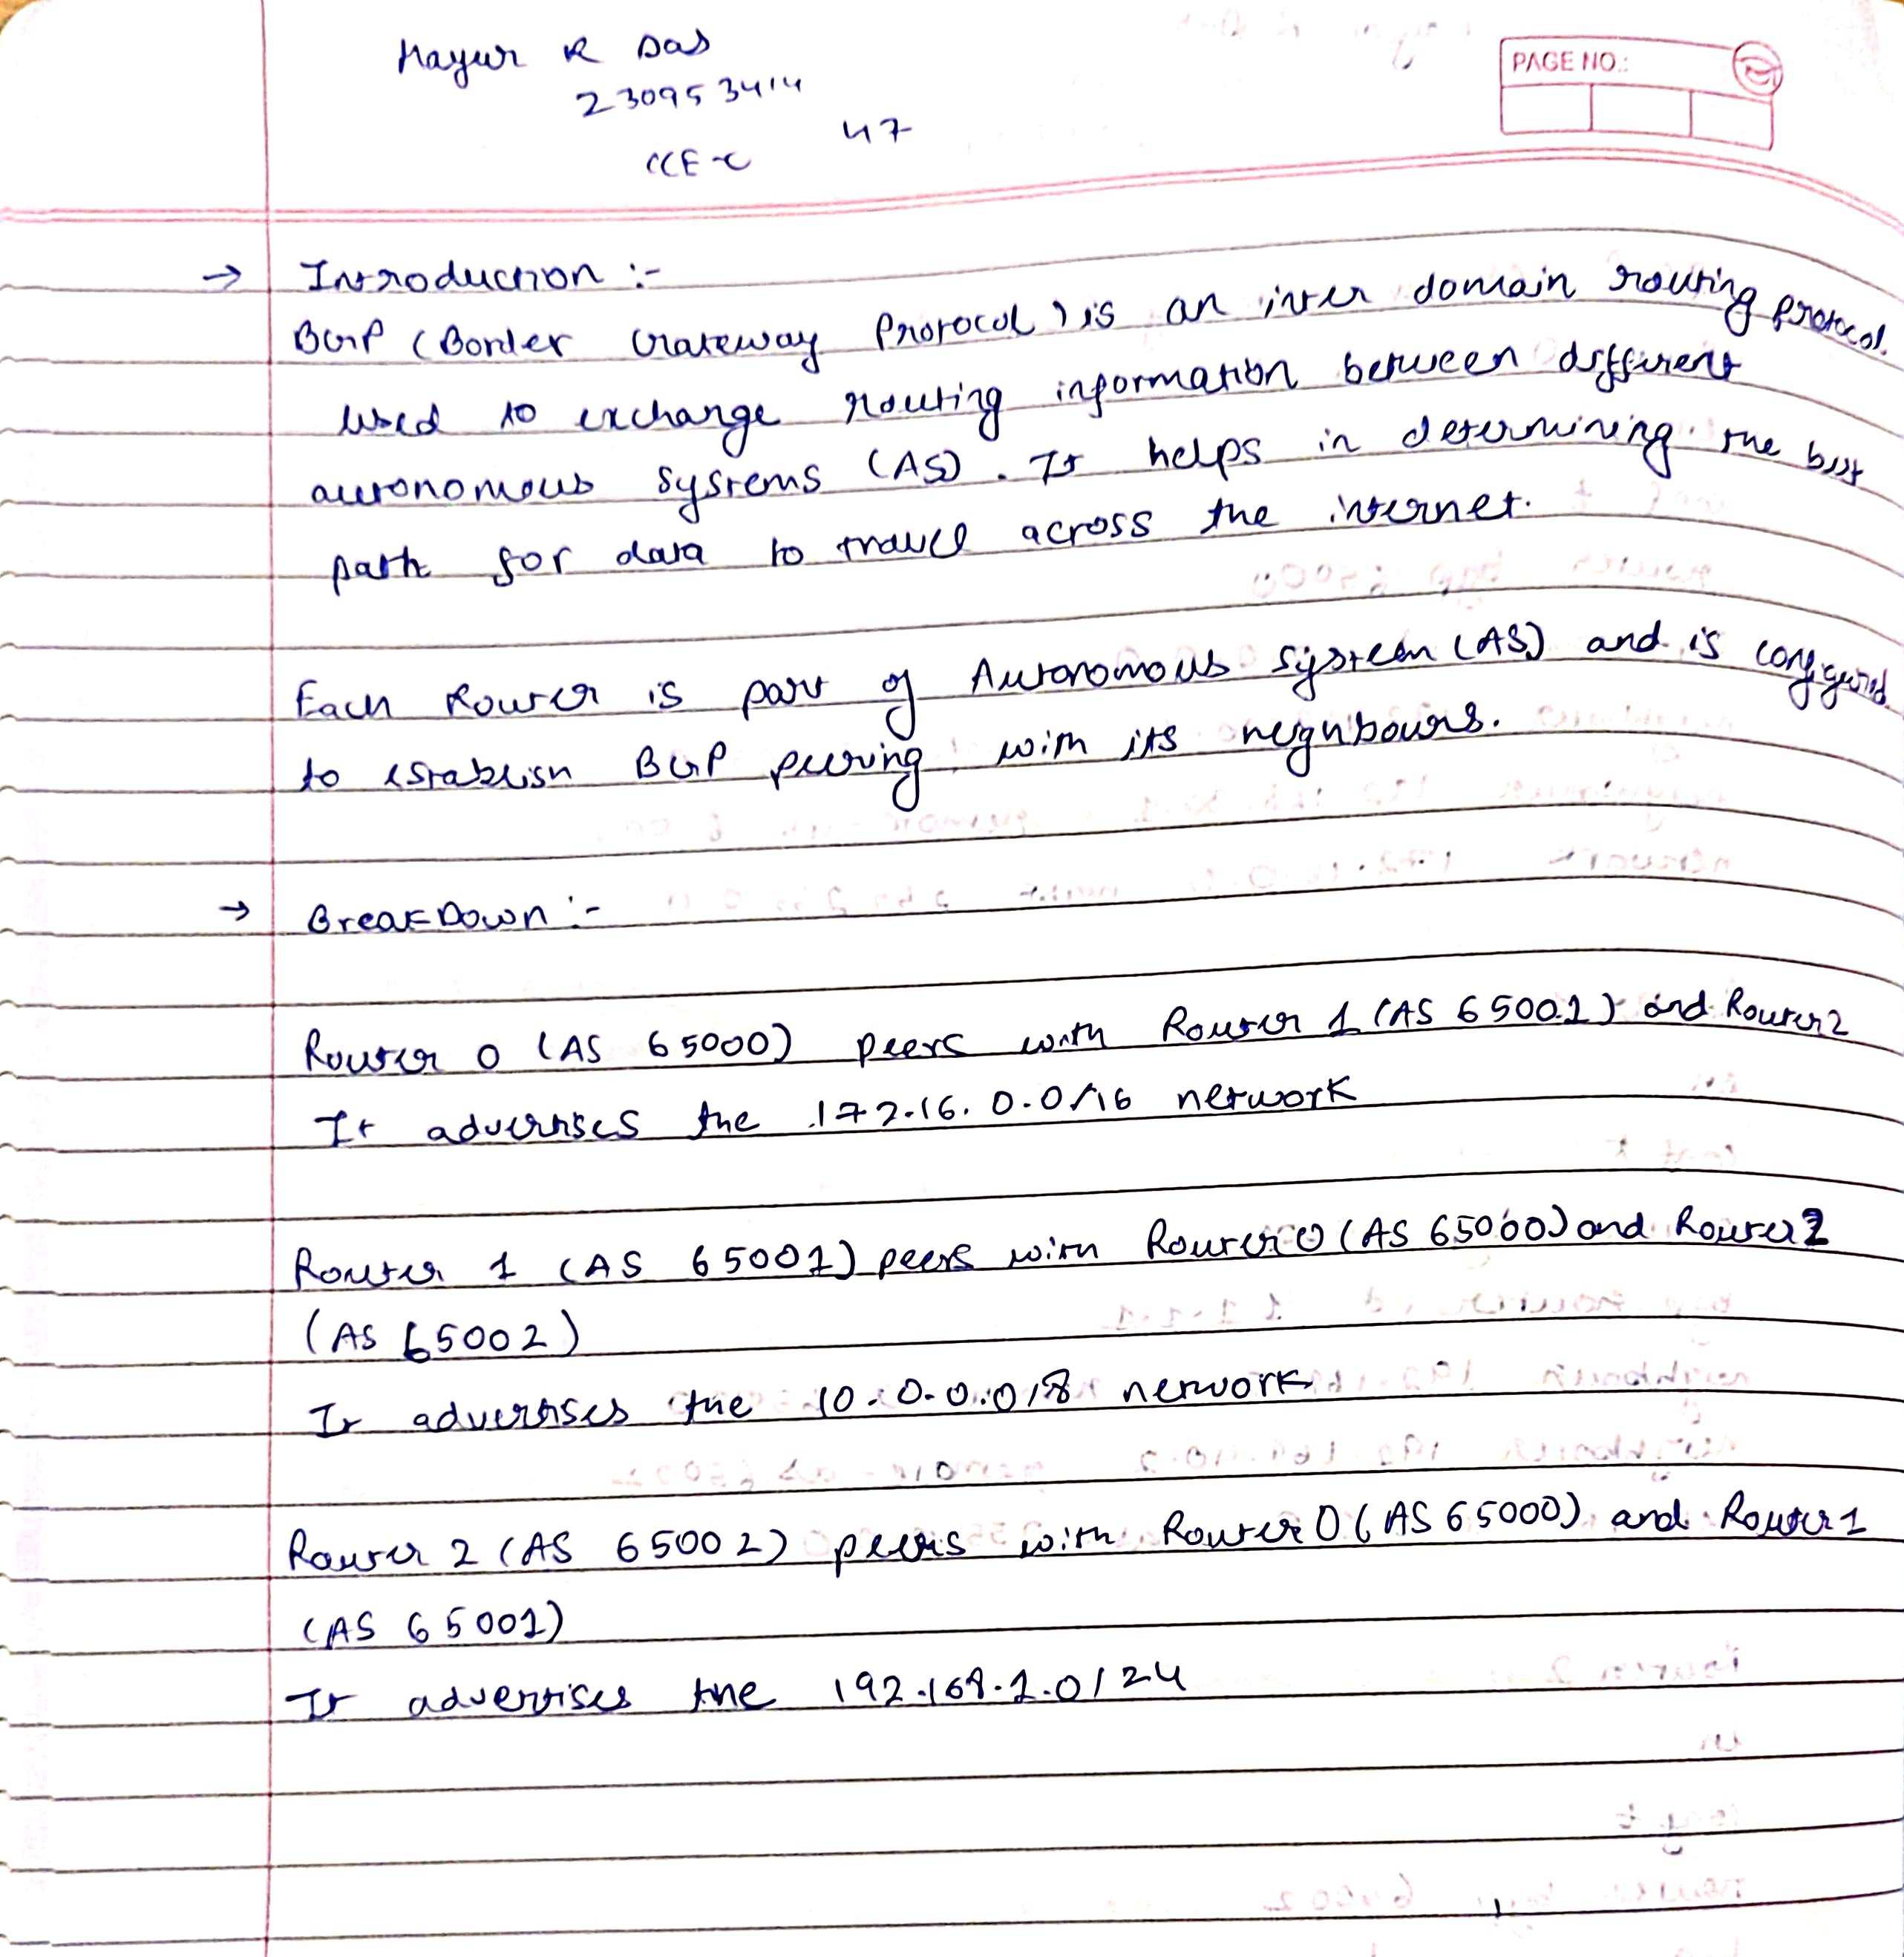 Mayur R Das
230953414
47
CCE-C
PAGE NO.:
→ Introduction :-
BGP (Border Gateway Protocol) is an inter domain routing protocol.
Used to exchange routing information between different
autonomous systems (AS). It helps in determining the best
path for data to travel across the internet.
Each Router is part of Autonomous system (AS) and is configured
to establish BGP peering with its neighbours.
→ BreakDown :-
Router 0 (AS 65000) peers with Router 1 (AS 65001) and Router 2
It advertises the 172.16.0.0/16 network
Router 1 (AS 65001) peers with Router 0 (AS 65000) and Router 2
(AS 65002)
It advertises the 10.0.0.0/8 network
Router 2 (AS 65002) peers with Router 0 (AS 65000) and Router 1
(AS 65001)
It advertises the 192.168.1.0/24